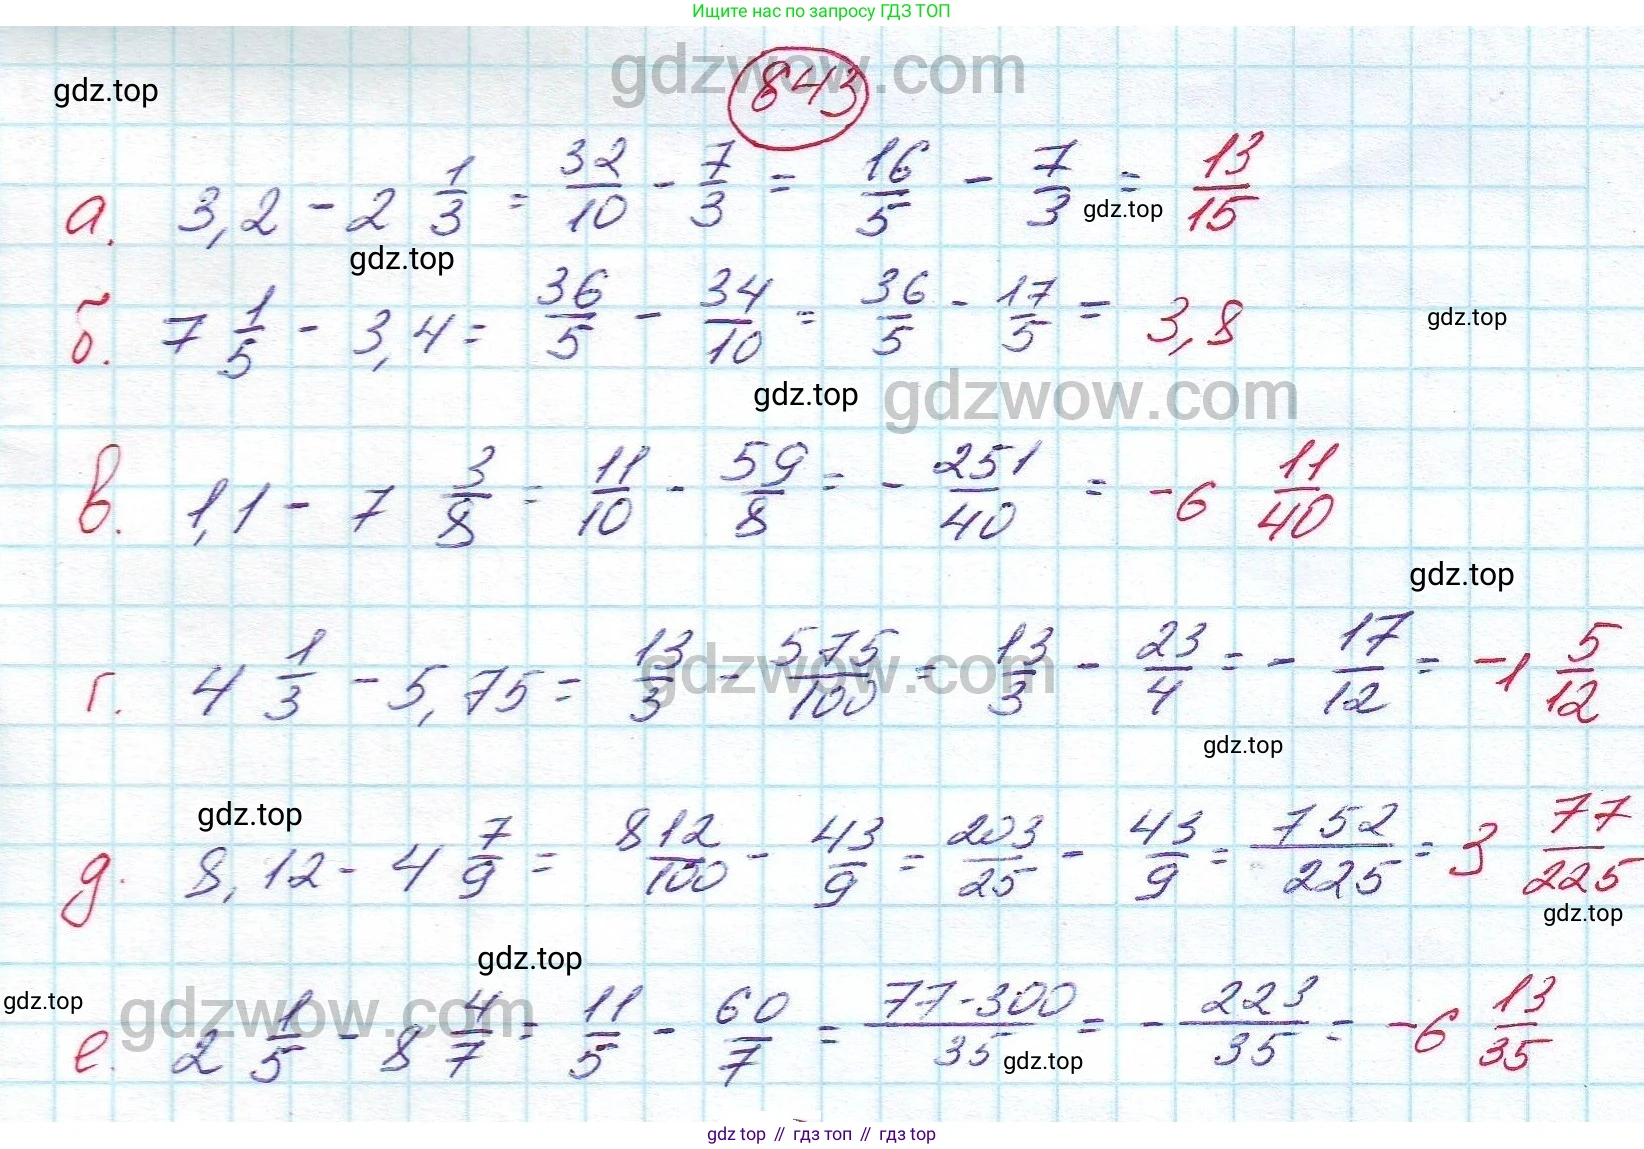 Ищите нас по запросу ГДЗ ТОП
gdzwow.com
gdz.top
843
а. 3,2 - 2 1/3 = 32/10 - 7/3 = 16/5 - 7/3 = 13/15
gdz.top
gdz.top
б. 7 1/5 - 3,4 = 36/5 - 34/10 = 36/5 - 17/5 = 3,8
gdz.top
gdz.top
gdzwow.com
в. 1,1 - 7 3/8 = 11/10 - 59/8 = - 251/40 = -6 11/40
gdz.top
г. 4 1/3 - 5,75 = 13/3 - 575/100 = 13/3 - 23/4 = - 17/12 = -1 5/12
gdzwow.com
gdz.top
gdz.top
д. 8,12 - 4 7/9 = 812/100 - 43/9 = 203/25 - 43/9 = 752/225 = 3 77/225
gdz.top
gdz.top
gdz.top
gdzwow.com
е. 2 1/5 - 8 4/7 = 11/5 - 60/7 = 77-300/35 = - 223/35 = -6 13/35
gdz.top
gdz top // гдз топ // гдз top